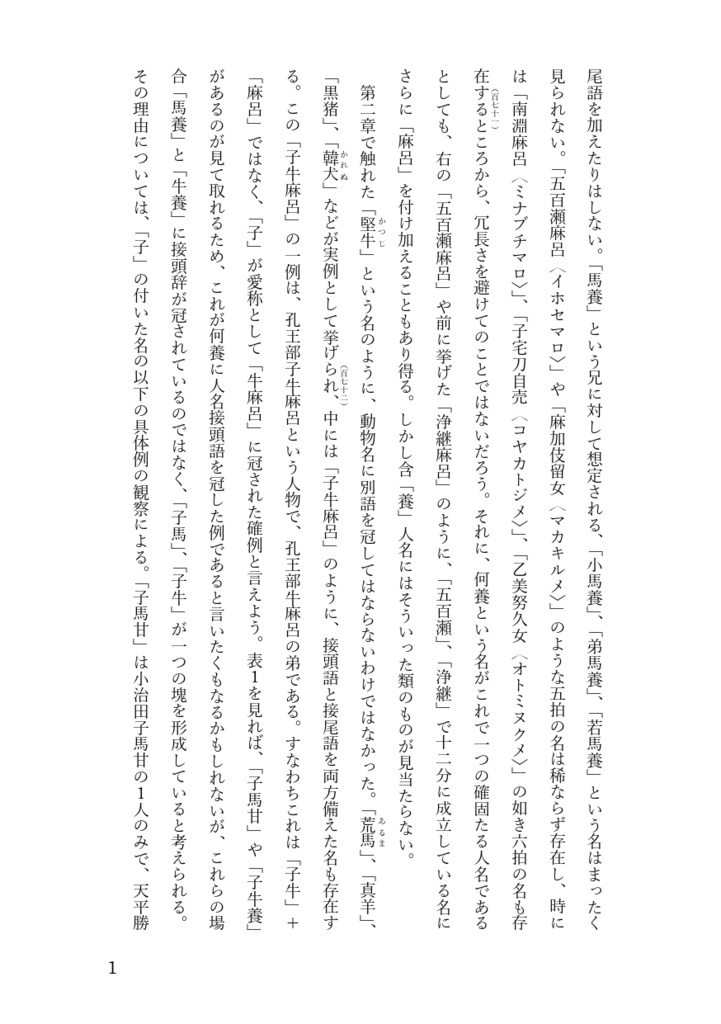 尾語を加えたりはしない。「馬養」という兄に対して想定される、「小馬養」、「弟馬養」、「若馬養」という名はまったく
見られない。「五百瀬麻呂（イホセマロ）」や「麻加伎留女（マカキルメ）」のような五拍の名は稀ならず存在し、時に
は「南淵麻呂（ミナブチマロ）」、「子宅刀自売（コヤカトジメ）」、「乙美努久女（オトミヌクメ）」の如き六拍の名も存
在する（百七十一）ところから、冗長さを避けてのことではないだろう。それに、何養という名がこれで一つの確固たる人名である
としても、右の「五百瀬麻呂」や前に挙げた「浄継麻呂」のように、「五百瀬」、「浄継」で十二分に成立している名に
さらに「麻呂」を付け加えることもあり得る。しかし含「養」人名にはそういった類のものが見当たらない。
第二章で触れた「堅牛（かつじ）」という名のように、動物名に別語を冠してはならないわけではなかった。「荒馬（あるま）」、「真羊」、
「黒猪」、「韓犬（かれぬ）」などが実例として挙げられ（百七十二）、中には「子牛麻呂」のように、接頭語と接尾語を両方備えた名も存在す
る。この「子牛麻呂」の一例は、孔王部子牛麻呂という人物で、孔王部牛麻呂の弟である。すなわちこれは「子牛」＋
「麻呂」ではなく、「子」が愛称として「牛麻呂」に冠された確例と言えよう。表1を見れば、「子馬甘」や「子牛養」
があるのが見て取れるため、これが何養に人名接頭語を冠した例であると言いたくもなるかもしれないが、これらの場
合「馬養」と「牛養」に接頭辞が冠されているのではなく、「子馬」、「子牛」が一つの塊を形成していると考えられる。
その理由については、「子」の付いた名の以下の具体例の観察による。「子馬甘」は小治田子馬甘の1人のみで、天平勝
1